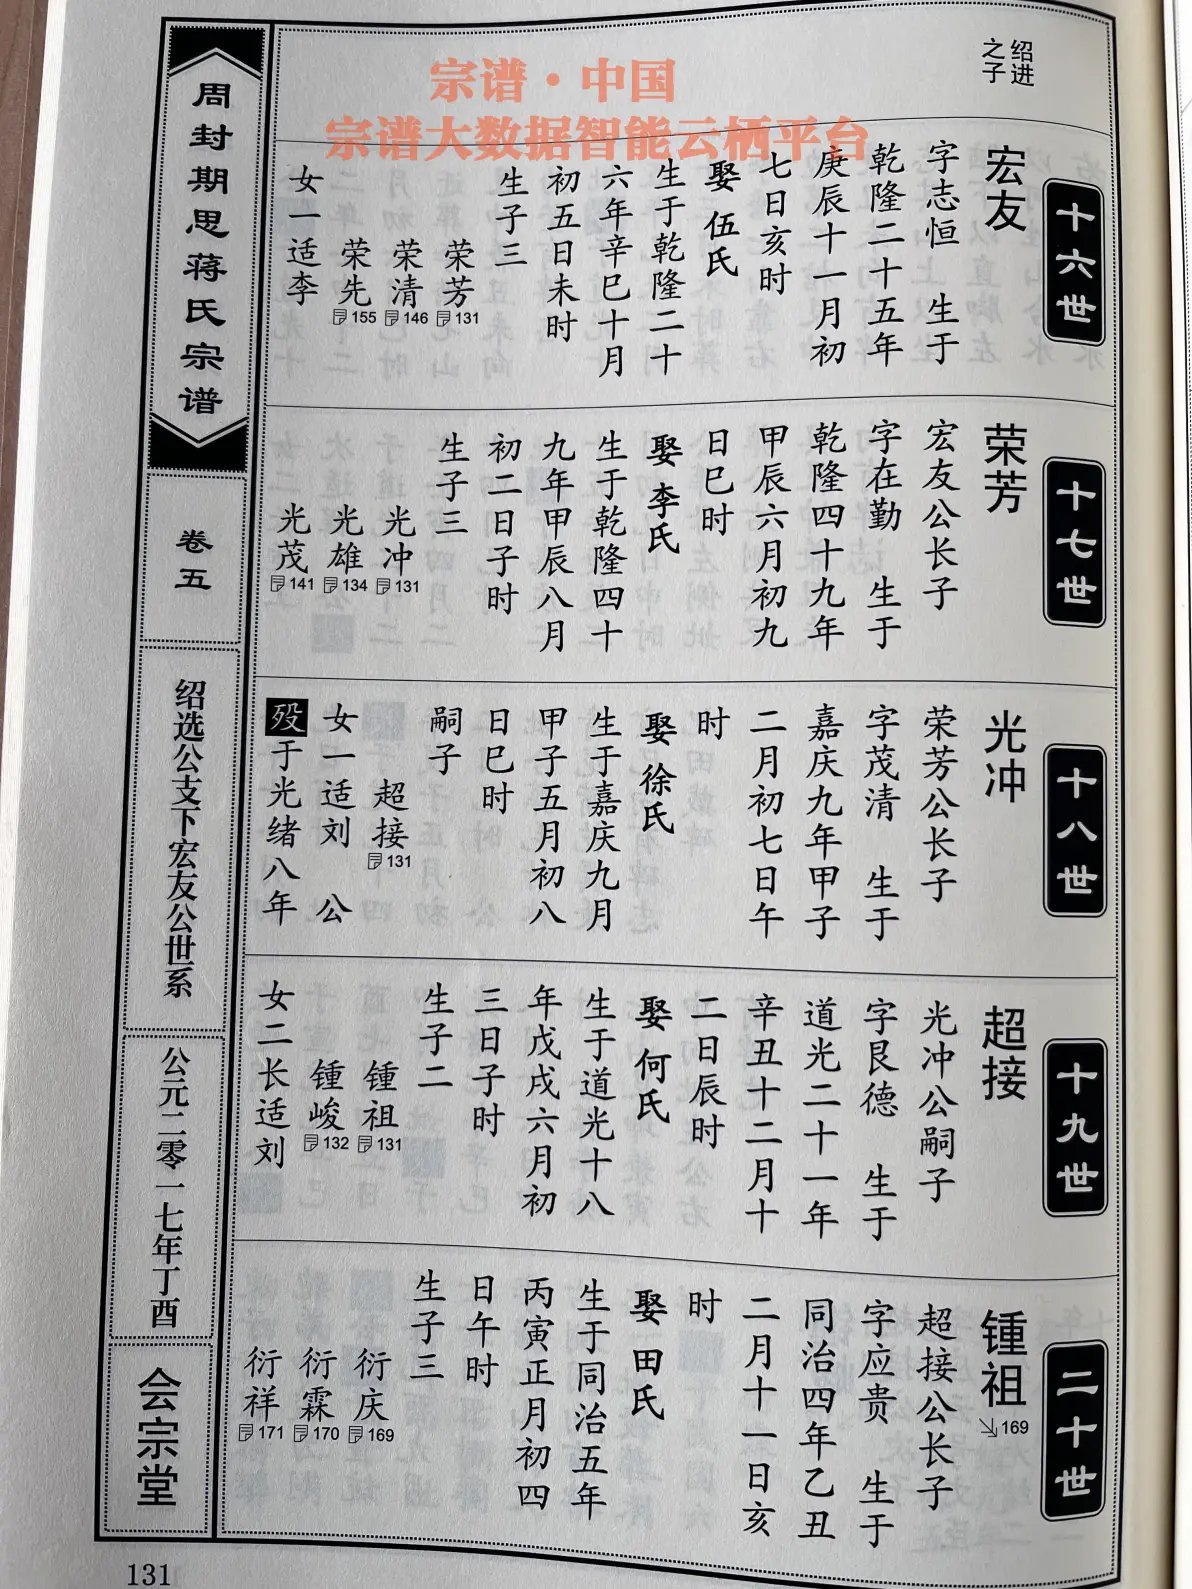 宗谱·中国
宗谱大数据智能云栖平台
绍进
之子
十六世
宏友
字志恒 生于
乾隆二十五年
庚辰十一月初
七日亥时
娶 伍氏
生于乾隆二十
六年辛巳十月
初五日未时
生子三
荣芳 131
荣清 146
荣先 155
女一适李
十七世
荣芳
宏友公长子
字在勤 生于
乾隆四十九年
甲辰六月初九
日巳时
娶 李氏
生于乾隆四十
九年甲辰八月
初二日子时
生子三
光冲 131
光雄 134
光茂 141
十八世
光冲
荣芳公长子
字茂清 生于
嘉庆九年甲子
二月初七日午
时
娶 徐氏
生于嘉庆九月
甲子五月初八
日巳时
嗣子
超接 131
女一适刘 公
殁于光绪八年
十九世
超接
光冲公嗣子
字艮德 生于
道光二十一年
辛丑十二月十
二日辰时
娶 何氏
生于道光十八
年戊戌六月初
三日子时
生子二
锺祖 131
锺峻 132
女二长适刘
二十世
锺祖 169
超接公长子
字应贵 生于
同治四年乙丑
二月十一日亥
时
娶 田氏
生于同治五年
丙寅正月初四
日午时
生子三
衍庆 169
衍霖 170
衍祥 171
周封期思蒋氏宗谱
卷五
绍选公支下宏友公世系
公元二零一七年丁酉
会宗堂
131